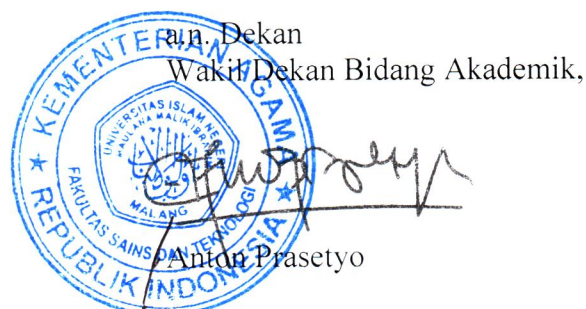 a.n. Dekan
Wakil Dekan Bidang Akademik,
KEMENTERIAN AGAMA
REPUBLIK INDONESIA
UNIVERSITAS ISLAM NEGERI
MAULANA MALIK IBRAHIM
MALANG
FAKULTAS SAINS DAN TEKNOLOGI
Anton Prasetyo